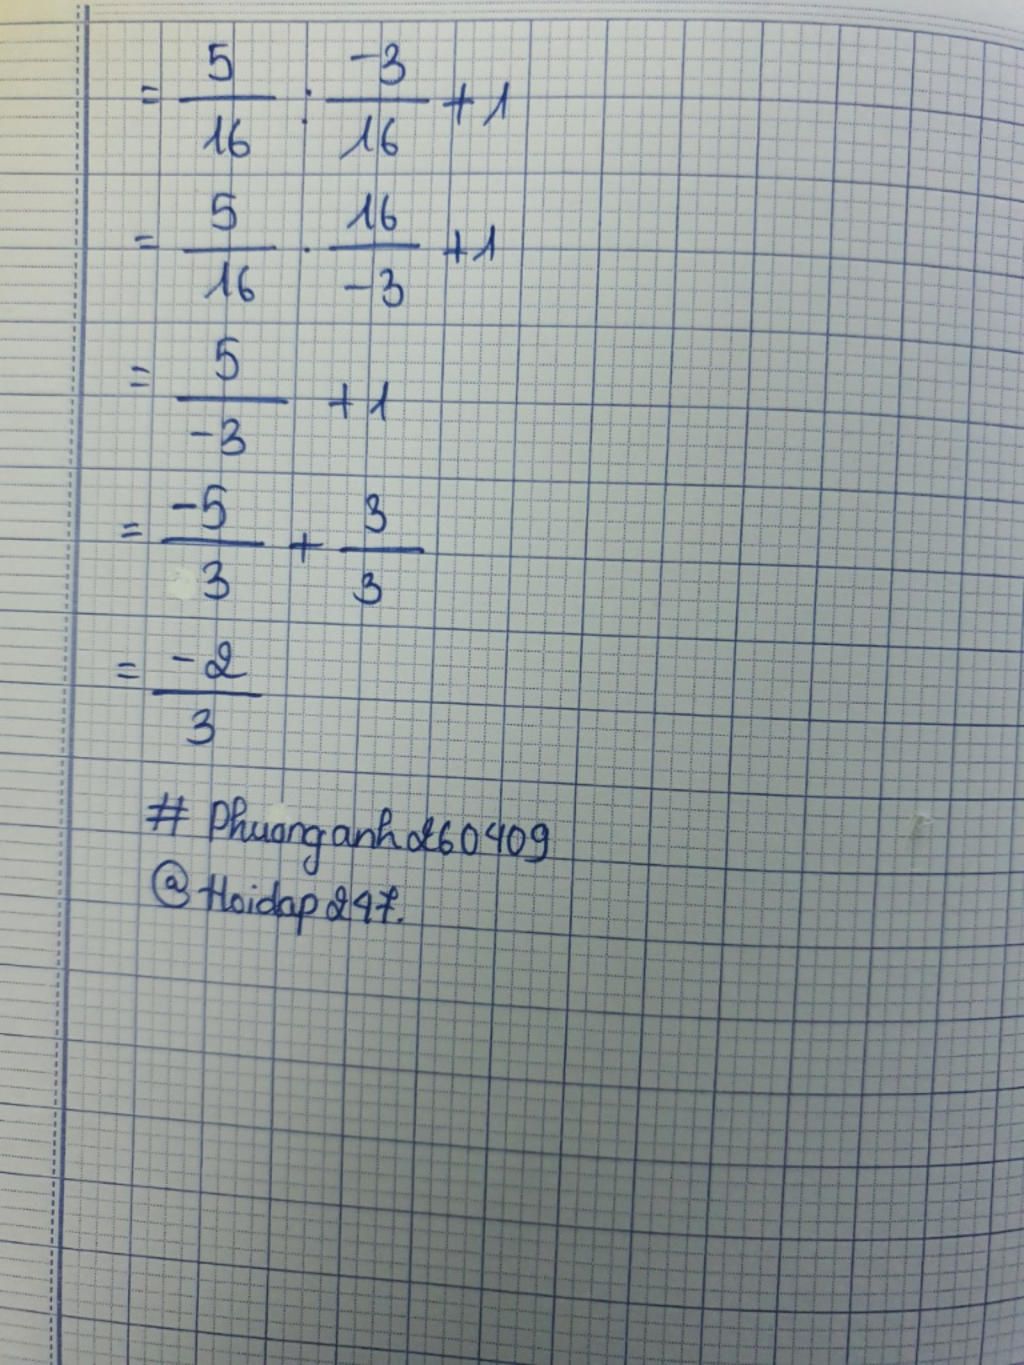 = 5/16 : -3/16 + 1
= 5/16 . 16/-3 + 1
= 5/-3 + 1
= -5/3 + 3/3
= -2/3
# Phuonganh260409
@Hoidap247.